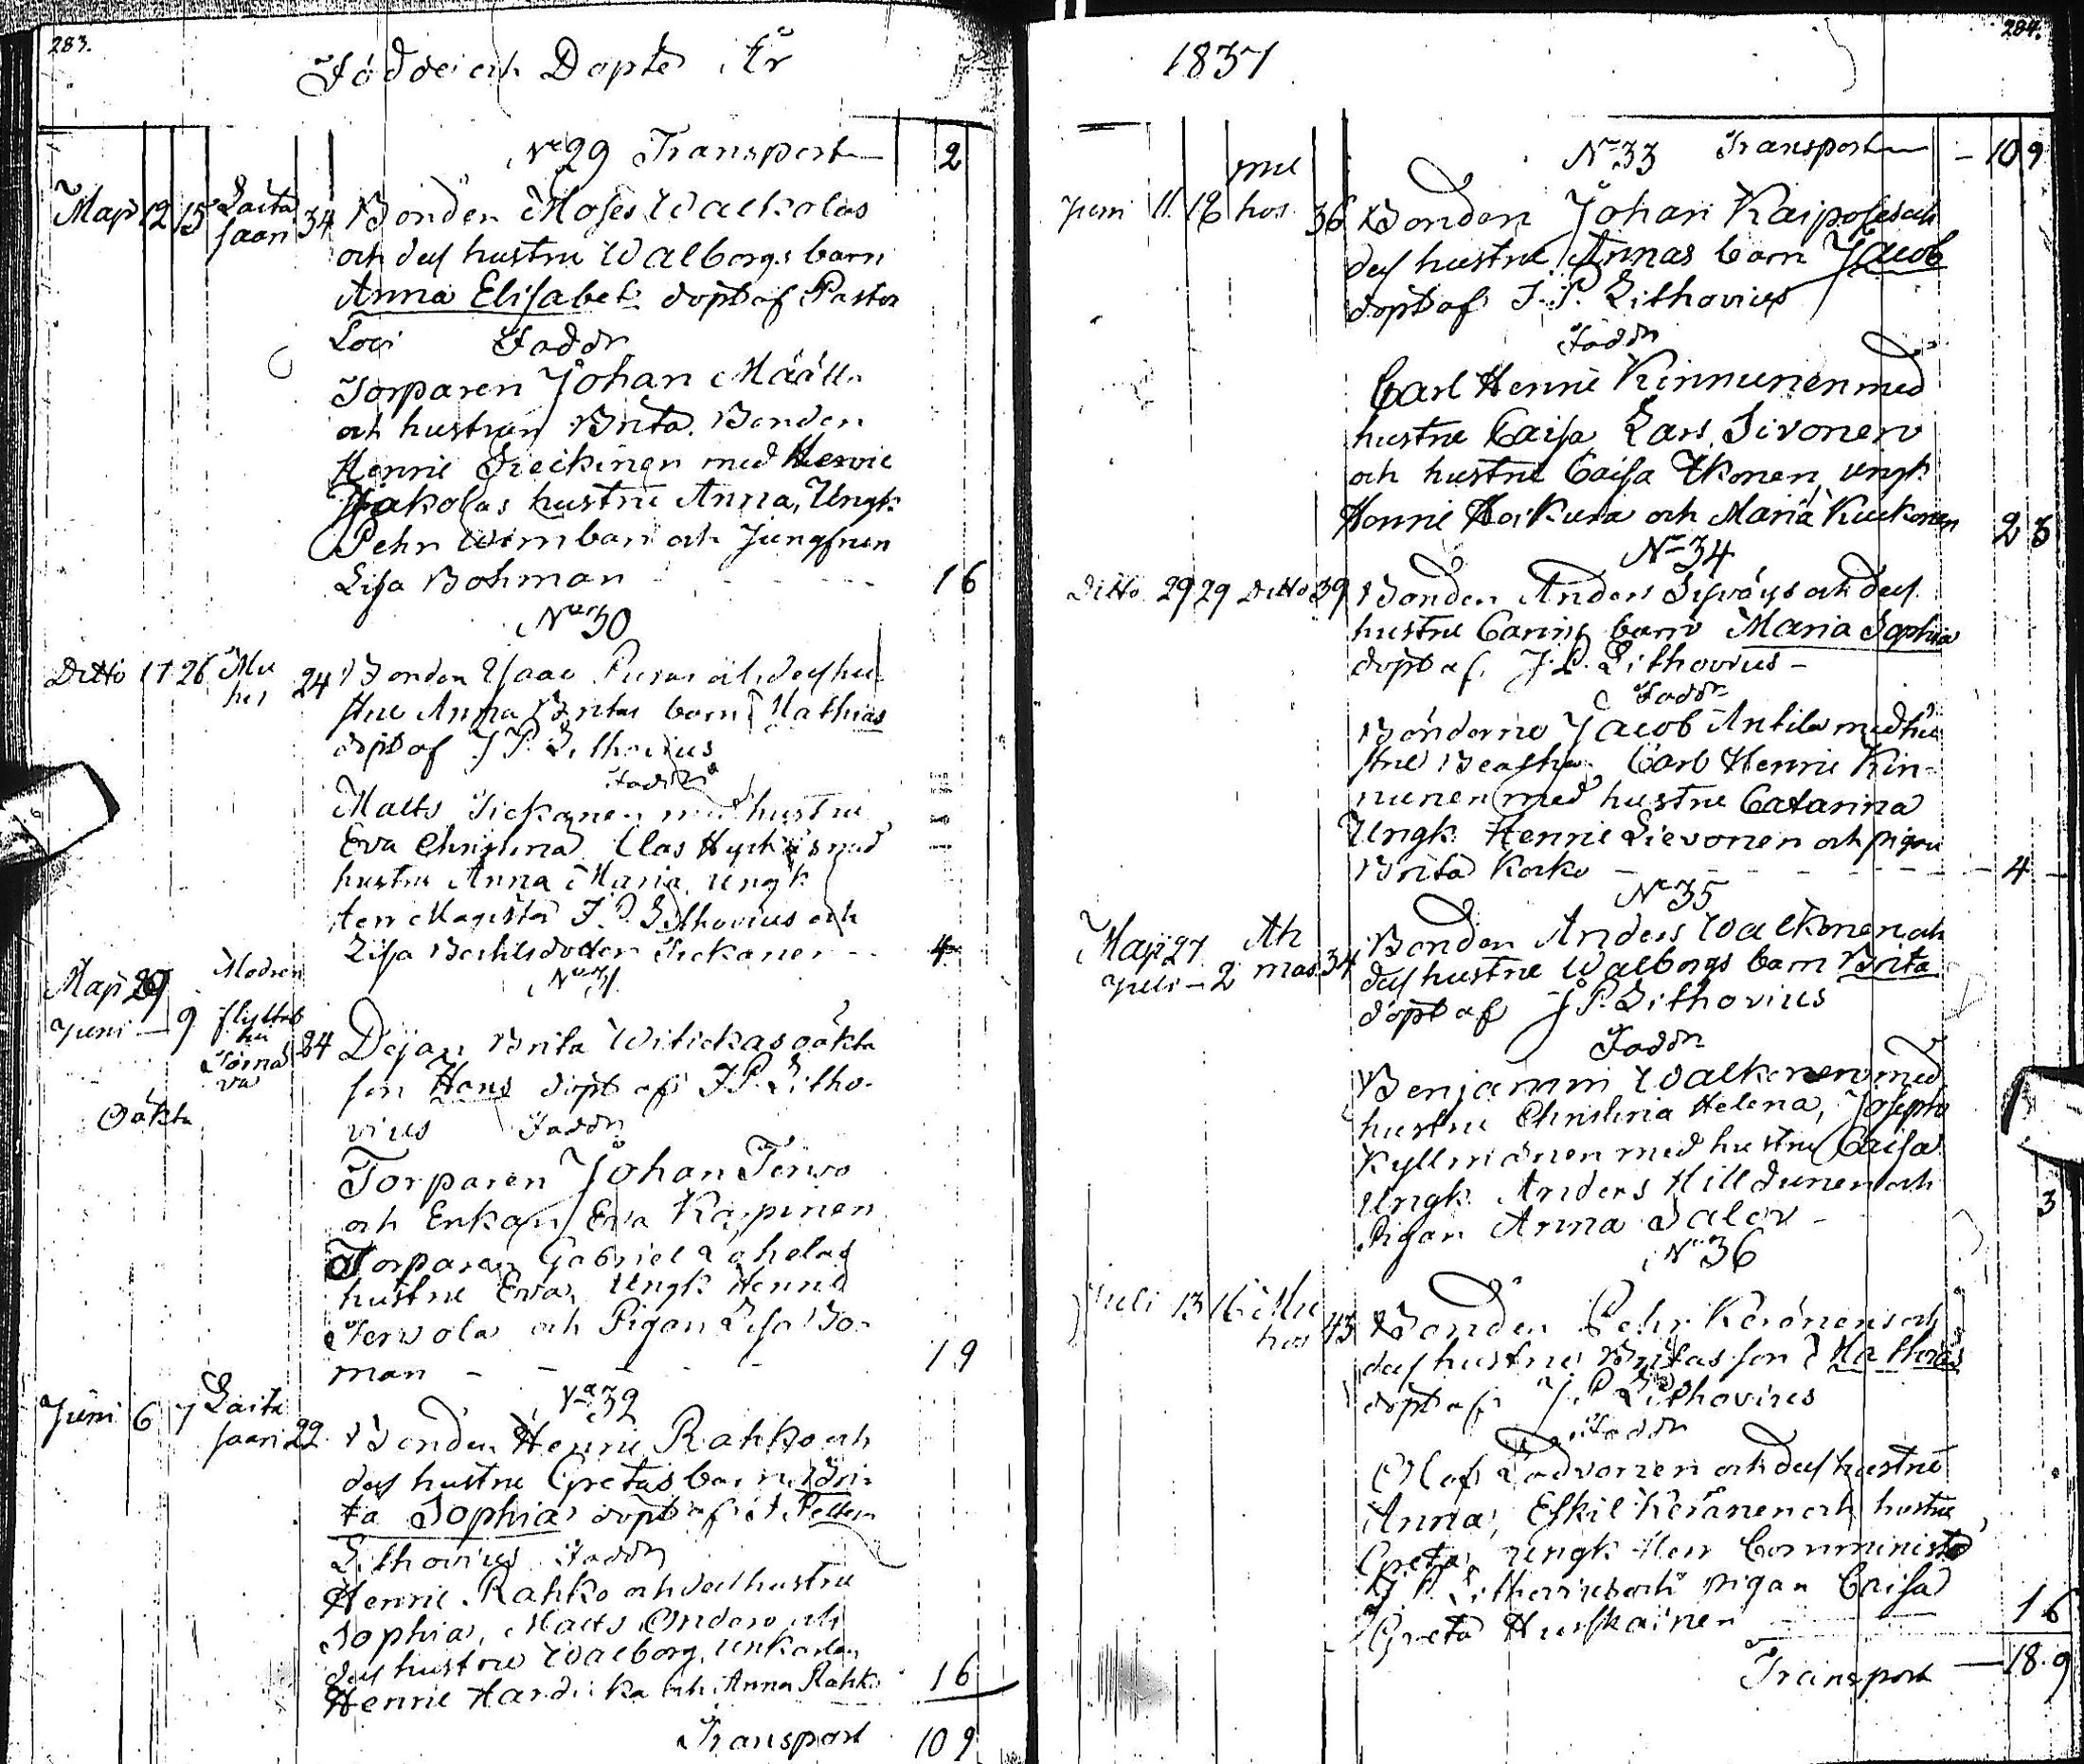 283.
Födde och Döpte År
No 29 Transport 2
Maji 12 15 Laita saari 34 Bonden Moses Walkolas
och dess hustru Walborgs barn
Anna Elisabet döpt af Pastor
Faddr
Torparen Johan Määttä
och hustrun Brita. Bonden
Henric med Henric
Jakolas hustru Anna, Ungk.
Pehr och Jungfrun
Lisa Bohman 16
No 30
Ditto 17 26 Mu hos 24 Bonden Isaac Puras och dess hu-
stru Anna Britas barn Mathias
döpt af J P Lithovius
Faddr
Matts Tickanen med hustru
Eva Christina Clas med
hustru Anna Maria, Ungk
Herr Magister J. P. Lithovius och
Lisa Bertilsdotter Tickanen 4
No 31
Maji 29 Modren
Juni 9 flyttat
84 Dejan Brita Witickas oäkta
Oäkta
son Hans döpt af J P. Litho-
vius Faddr
Torparen Johan Tervo
och Enkan Eva Karpinen
Torparen Gabriel Lahelas
hustru Eva, Ungk Henric
Tervola och Pigan Lisa Bo-
man 19
No 32
Juni 6 7 Laita saari 22 Bonden Henric Rahko och
dess hustru Gretas barn Bri-
ta Sophia döpt af J. Petter
Lithovius Faddr
Henric Rahko och dess hustru
Sophia, Matts och
dess hustru Walborg,
Henric och Anna Rahko 16
Transport 109
284.
1837
No 33 Transport 109
Juni 11 18 Mu hos 36 Bonden Johan och
dess hustru Annas barn Jacob
döpt af J. P. Lithovius
Faddr
Carl Henric Kinnunen med
hustru Caisa Lars Sivonen
och hustru Caisa Ikonen, Ungk
Henric och Maria 23
No 34
Ditto 29 29 Ditto 39 Bonden Anders och dess
hustru Carins barn Maria Sophia
döpt af J. P. Lithovius
Faddr
Bönderne Jacob Antila med hu
stru Beatha. Carl Henric Kin-
nunen med hustru Catarina
Ungk. Henric Sievonen och pigan
Brita Korko 4
No 35
Maji 27 Ah
Juli 2 mas 34 Bonden Anders Walkonen och
dess hustru Walborgs barn Brita
döpt af J P. Lithovius
Faddr
Benjamin Walkonen med
hustru Christina Helena, Joseph
Kyllmänen med hustru Caisa
Ungk Anders och
Pigan Anna 3
No 36
Juli 13 16 Mu hos 43 Bonden Pehr Keränens och
dess hustru Britas son Mathias
döpt af J. P. Lithovius
Faddr
Olof och dess hustru
Anna, Eskil Keränen och hustru
Greta, Ungk Herr Comminister
J P. Lithovius och pigan Caisa
Greta Huuskainen 16
Transport 189